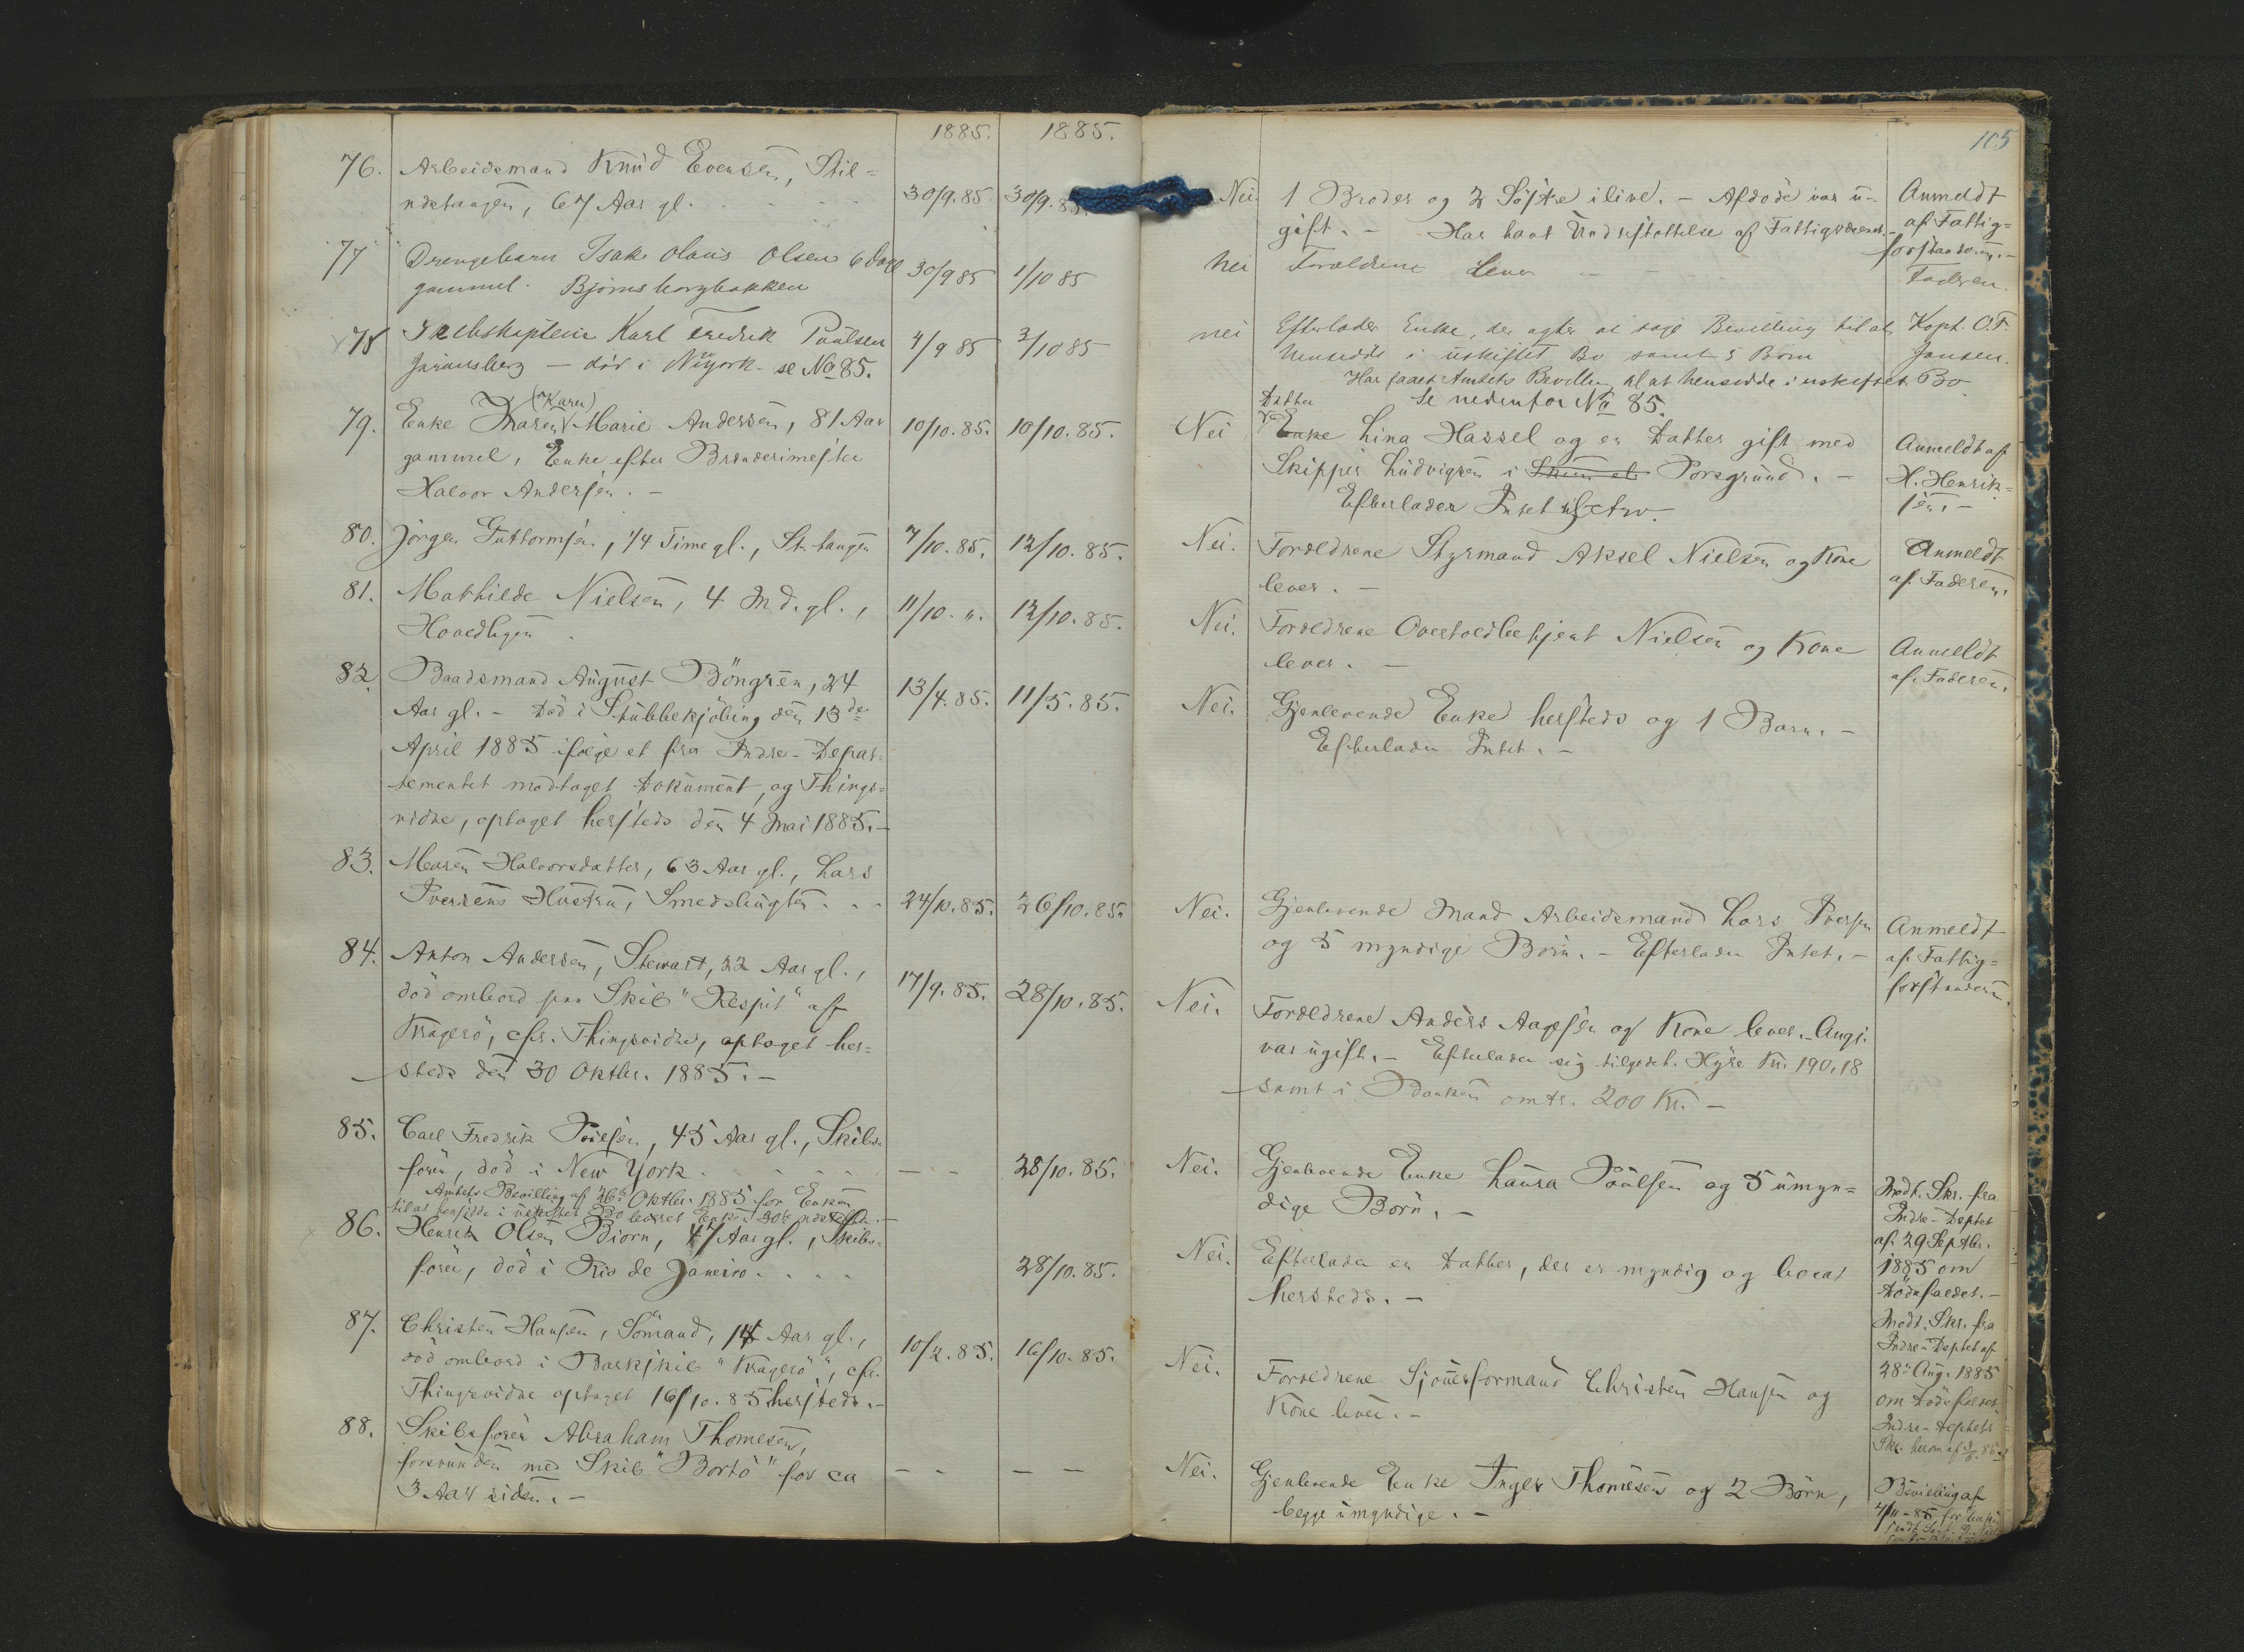 1885. 1885.
76. Arbeidsmand Knud Evensen, Stil=
ndstangen, 67 Aar gl. 30/9.85 30/9.85
77 Drengebarn Isak Olaus Olsen 6 Dage
gammel. Bjørnsborgbakken 30/9 85 1/10 85
78 Skibskaptein Karl Fredrik Poulsen
død i Nuyork. se No 85. 4/9 85 2/10 85
(Karen)
79. Enke Maren Marie Andersen, 81 Aar 10/10.85. 10/10.85.
gammel, Enke efter Brænderimester
Halvor Andersen. -
80. Jørgen Guttormsen, 1/4 Time gl., St. tangen 7/10.85. 12/10.85.
81. Mathilde Nielsen, 4 Md. gl., 11/10. ". 12/10.85.
82. Baadsmand August Böngren, 24 13/4.85. 11/5.85.
Aar gl. - Død i Stubbekjøbing den 13de
April 1885 ifølge et fra Indre-Depar=
tementet modtaget Dokument, og Things=
vidne, optaget hersteds den 4 Mai 1885. -
83. Maren Halvorsdatter, 63 Aar gl., Lars
Iversens Hustru, Smedsbugten. 24/10.85. 26/10.85.
84. Anton Andersen, Stewart, 22 Aar gl.,
død ombord paa Skib "Respit" af 17/9.85. 28/10.85.
Kragerø, cfr. Thingsvidne, optaget her=
steds den 30 Oktbr. 1885. -
85. Carl Fredrik Poulsen, 45 Aar gl., Skibs
fører, død i New York. - - 28/10.85.
Amtets Bevilling af 26de Oktbr. 1885 for Enken
til at hensidde i uskiftet Bo leveret Enken
86. Henrik Olsen Biorn, 47 Aar gl., Skibs=
fører, død i Rio de Janeiro. 28/10.85.
87. Christen Hansen, Sømand, 14 Aar gl.,
død ombord i Barkskib "Kragerø", cfr. 10/2.85. 16/10.85.
Thingsvidne optaget 16/10.85 hersteds. -
88. Skibsfører Abraham Thomesen,
forsvunden med Skib "Bortø" for ca - - - -
3 Aar siden. -
105
Nei. 1 Broder og 2 Søstre ilive. - Afdøde var u-
gift. - Har havt Understøttelse af Fattigvæsenet. -
Anmeldt
af Fattig=
forstanderen. -
Nei Forældrene lever -
Faderen.
nei Efterlader Enke, der agter at søge Bevilling til at
hensidde i uskiftet Bo samt 5 Børn
Har faaet Amtets Bevilling til at hensidde i uskiftet Bo
Se nedenfor No 85.
Kapt. O. F.
Jansen.
Datter
Nei Enke Lina Hassel og en Datter gift med
Skipper Ludvigsen i Porsgrund. -
Efterlader Intet
Anmeldt af
H. Henrik=
sen. -
Nei. Forældrene Styrmand Aksel Nielsen og Kone
lever. -
Anmeldt
af Faderen.
Nei. Forældrene Overtoldbetjent Nielsen og Kone
lever. -
Anmeldt
af Faderen.
Nei. Gjenlevende Enke hersteds og 1 Barn. -
Efterlader Intet. -
Nei. Gjenlevende Mand Arbeidsmand Lars Iversen
og 5 myndige Børn. - Efterlader Intet. -
Anmeldt
af Fattig=
forstanderen.
Nei. Forældrene Anders Aagesen og Kone lever. - Angj.
var ugift. - Efterlader sig tilgodeh. Hyre Kr. 190,18
samt i Banken omtr. 200 Kr. -
Nei. Gjenlevende Enke Laura Poulsen og 5 umyn=
dige Børn. -
Modt. Skr. fra
Indre-Deptet
af 29 Septbr.
1885 om
Dødsfaldet. -
Nei. Efterlader en Datter, der er myndig og boeat
hersteds. -
Modt. Skr. fra
Indre-Deptet af
28 Aug. 1885
om Dødsfaldet.
Nei. Forældrene Sjouerformand Christen Hansen og
Kone lever. -
Indre-Deptets
Skr. herom af
Nei. Gjenlevende Enke Inger Thomesen og 2 Børn,
begge umyndige. -
Bevilling af